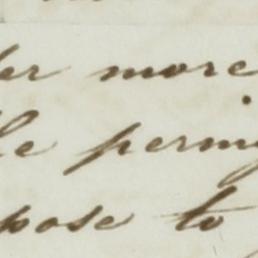 er more
le permi
pose to